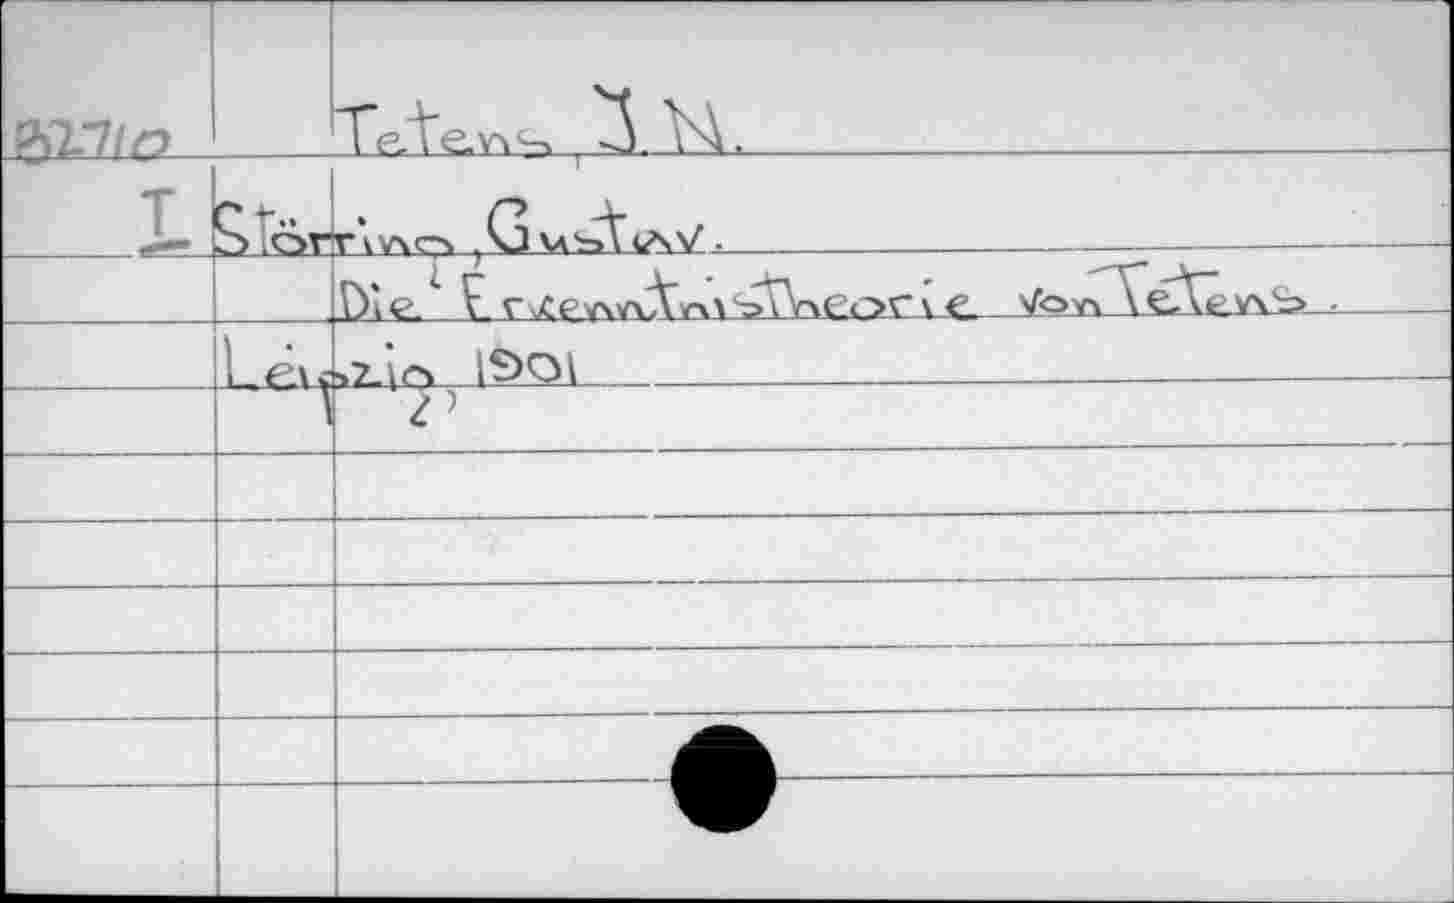 Tetens, J. N.
I Störring, Gustav.
Die Erkenntnistheorie von Tetens.
Leipzig, 1901